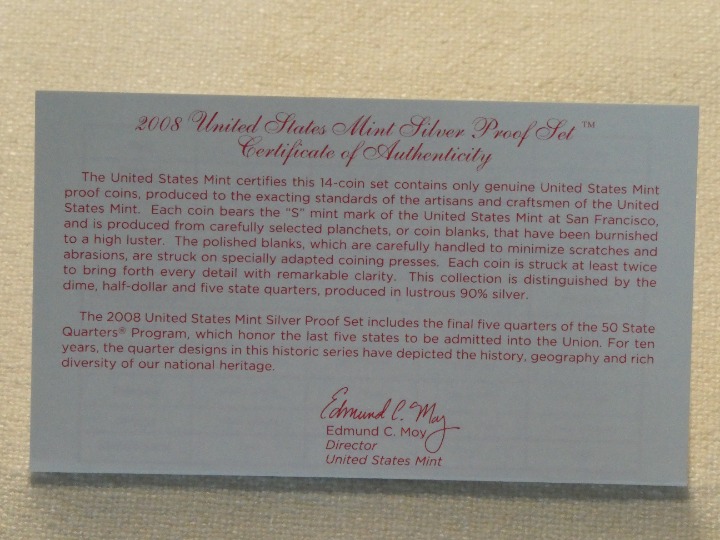 2008 United States Mint Silver Proof Set ™
Certificate of Authenticity
The United States Mint certifies this 14-coin set contains only genuine United States Mint
proof coins, produced to the exacting standards of the artisans and craftsmen of the United
States Mint. Each coin bears the "S" mint mark of the United States Mint at San Francisco,
and is produced from carefully selected planchets, or coin blanks, that have been burnished
to a high luster. The polished blanks, which are carefully handled to minimize scratches and
abrasions, are struck on specially adapted coining presses. Each coin is struck at least twice
to bring forth every detail with remarkable clarity. This collection is distinguished by the
dime, half-dollar and five state quarters, produced in lustrous 90% silver.
The 2008 United States Mint Silver Proof Set includes the final five quarters of the 50 State
Quarters® Program, which honor the last five states to be admitted into the Union. For ten
years, the quarter designs in this historic series have depicted the history, geography and rich
diversity of our national heritage.
Edmund C. Moy
Edmund C. Moy
Director
United States Mint